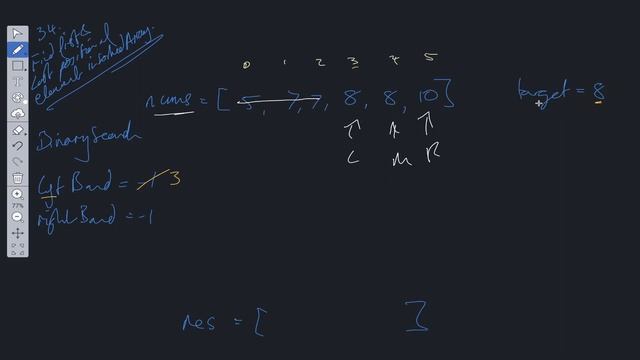 34.
Find first &
Last position of
element in sorted Array
0 1 2 3 4 5
nums = [ 5, 7, 7, 8, 8, 10 ]
target = 8
L M R
Binary Search
Left Band = -1 3
right Band = -1
77%
res = [ ]